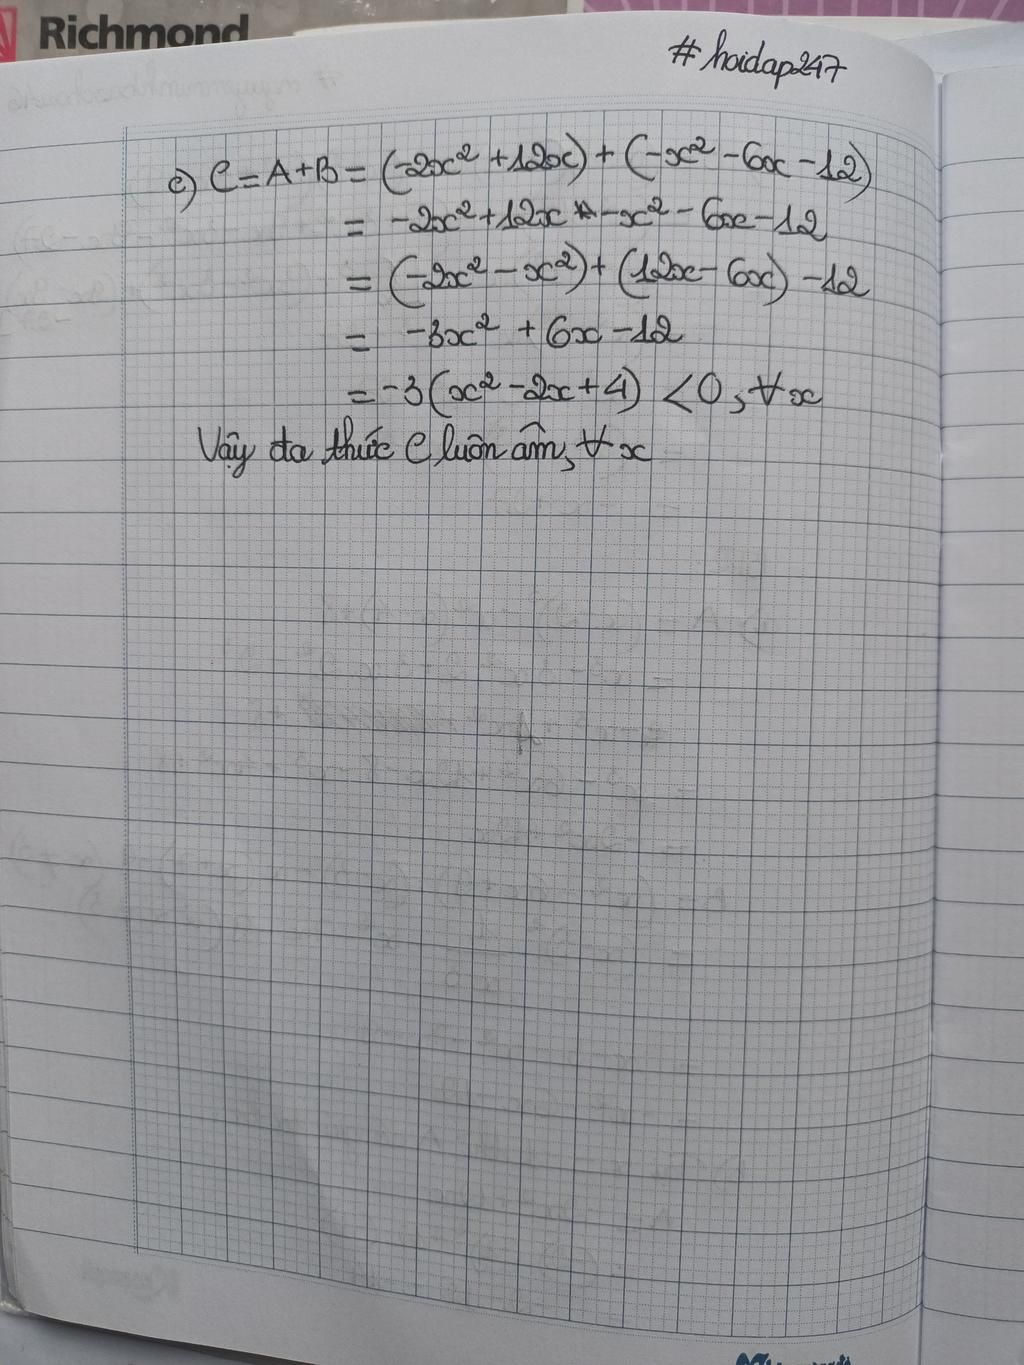 Richmond
#hoidap247
c) C = A + B = (-2x² + 12x) + (-x² - 6x - 12)
= -2x² + 12x - x² - 6x - 12
= (-2x² - x²) + (12x - 6x) - 12
= -3x² + 6x - 12
= -3(x² - 2x + 4) < 0, ∀x
Vậy đa thức C luôn âm, ∀x